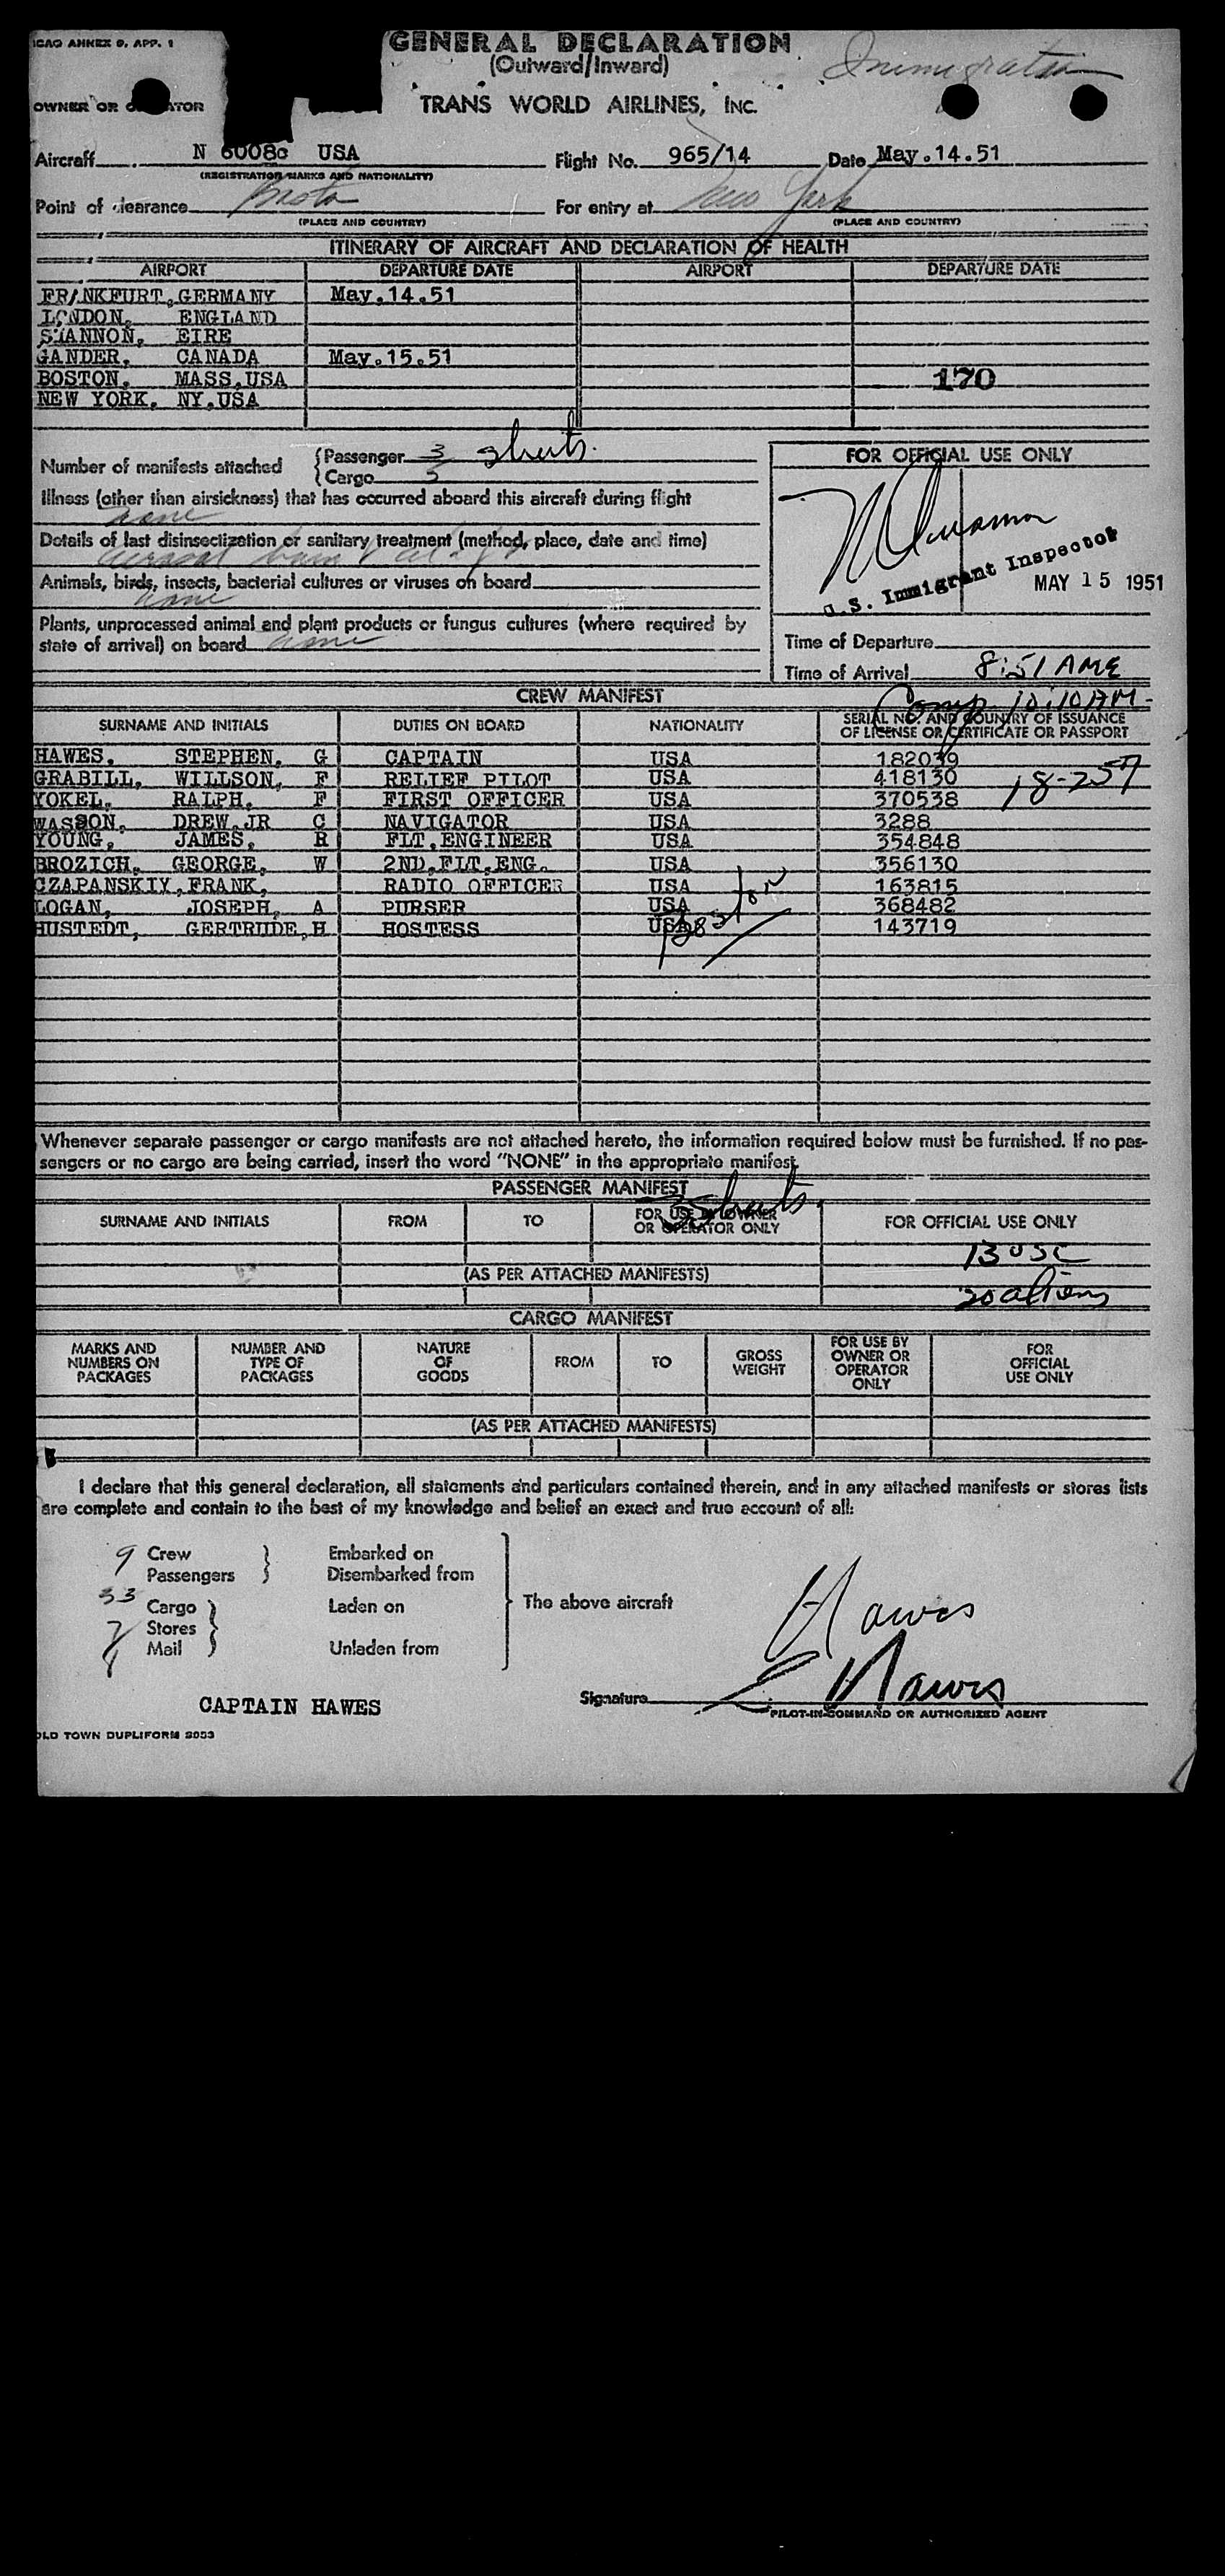 ICAO ANNEX 9, APP. 1
GENERAL DECLARATION
(Outward/Inward)
Immigration
OWNER OR OPERATOR
TRANS WORLD AIRLINES, INC.
Aircraft N 6008c USA Flight No. 965/14 Date May.14.51
(REGISTRATION MARKS AND NATIONALITY)
Point of clearance For entry at New York
(PLACE AND COUNTRY) (PLACE AND COUNTRY)
ITINERARY OF AIRCRAFT AND DECLARATION OF HEALTH
AIRPORT DEPARTURE DATE AIRPORT DEPARTURE DATE
FRANKFURT,GERMANY May.14.51
LONDON, ENGLAND
SHANNON, EIRE
GANDER, CANADA May.15.51
BOSTON, MASS,USA 170
NEW YORK, NY.USA
Number of manifests attached Passenger 3 sheets.
Cargo
FOR OFFICIAL USE ONLY
Illness (other than airsickness) that has occurred aboard this aircraft during flight
none
Details of last disinsectization or sanitary treatment (method, place, date and time)
aerosol bomb
Animals, birds, insects, bacterial cultures or viruses on board
none
U.S. Immigrant Inspector
MAY 15 1951
Plants, unprocessed animal and plant products or fungus cultures (where required by
state of arrival) on board none
Time of Departure
Time of Arrival 8:51 AM
Comp 10:10 AM-
CREW MANIFEST
SURNAME AND INITIALS DUTIES ON BOARD NATIONALITY SERIAL NO. AND COUNTRY OF ISSUANCE
OF LICENSE OR CERTIFICATE OR PASSPORT
HAWES, STEPHEN, G CAPTAIN USA 182039
GRABILL, WILLSON, F RELIEF PILOT USA 418130 18-257
YOKEL, RALPH, F FIRST OFFICER USA 370538
WASSON, DREW,JR C NAVIGATOR USA 3288
YOUNG, JAMES, R FLT,ENGINEER USA 354848
BROZICH, GEORGE, W 2ND,FLT,ENG. USA 356130
CZAPANSKIY,FRANK, RADIO OFFICER USA 163815
LOGAN, JOSEPH, A PURSER USA 368482
HUSTEDT, GERTRUDE,H HOSTESS USA 143719
Boston
Whenever separate passenger or cargo manifests are not attached hereto, the information required below must be furnished. If no pas-
sengers or no cargo are being carried, insert the word "NONE" in the appropriate manifest.
PASSENGER MANIFEST
3 sheets.
SURNAME AND INITIALS FROM TO FOR USE BY OWNER
OR OPERATOR ONLY FOR OFFICIAL USE ONLY
13 USC
(AS PER ATTACHED MANIFESTS)
20 aliens
CARGO MANIFEST
MARKS AND
NUMBERS ON
PACKAGES
NUMBER AND
TYPE OF
PACKAGES
NATURE
OF
GOODS
FROM
TO
GROSS
WEIGHT
FOR USE BY
OWNER OR
OPERATOR
ONLY
FOR
OFFICIAL
USE ONLY
(AS PER ATTACHED MANIFESTS)
I declare that this general declaration, all statements and particulars contained therein, and in any attached manifests or stores lists
are complete and contain to the best of my knowledge and belief an exact and true account of all:
9 Crew Embarked on
33 Passengers Disembarked from
Cargo Laden on The above aircraft
Stores
Mail Unladen from
Hawes
Hawes
CAPTAIN HAWES
Signature
PILOT-IN-COMMAND OR AUTHORIZED AGENT
OLD TOWN DUPLIFORM 2053